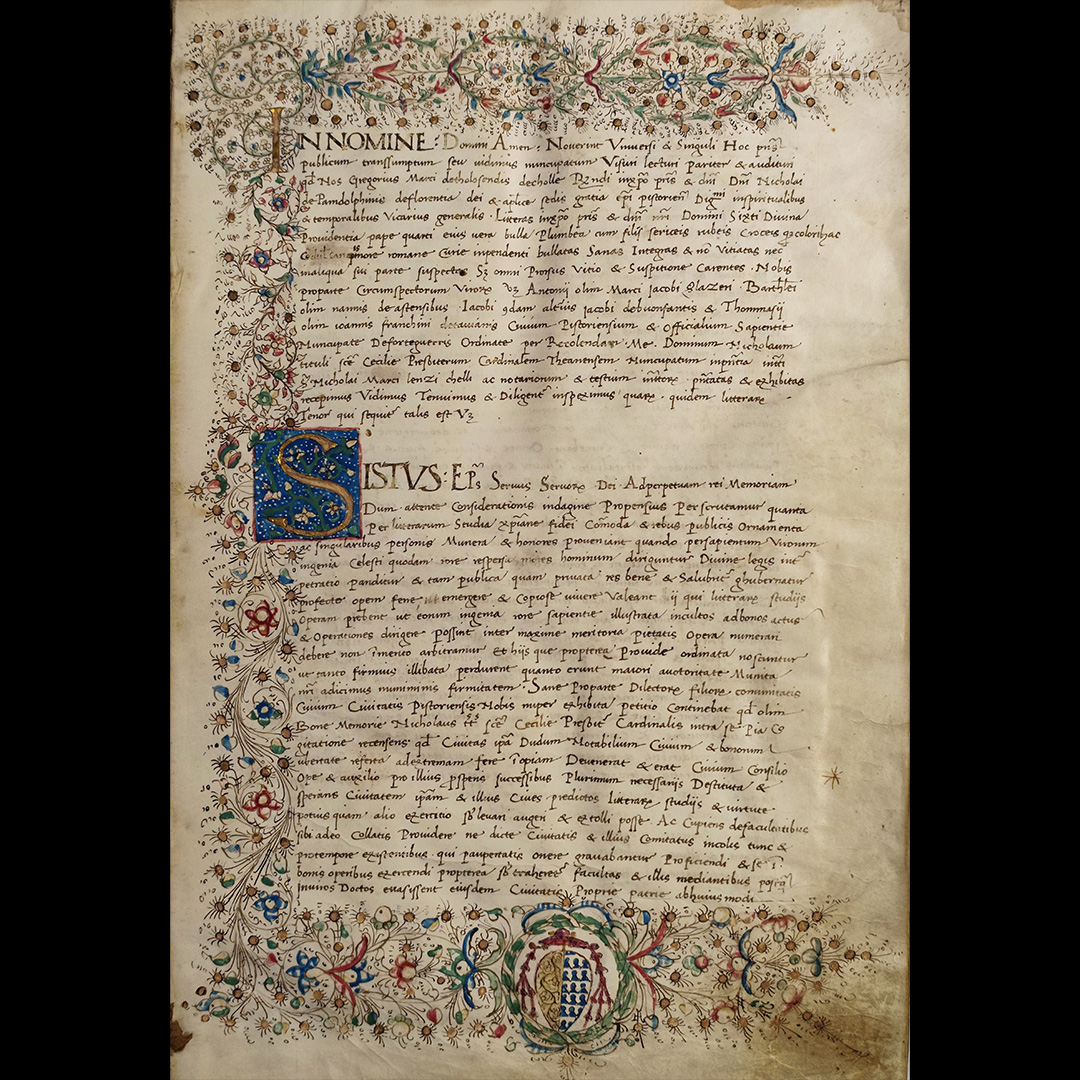 IN NOMINE: Domini Amen: Noverint Universi & Singuli Hoc pñs
publicum transsumptum seu vidimus nuncupatum Visuri lecturi pariter & audituri
qd Nos Gregorius Marci Rṽdi inxp̃o pr̃is & dñi Dñi Nicholai
de Pandolphinis deflorentia dei & aplice sedis gratia ep̃i pistorien̄ inspiritualibus
& temporalibus Vicarius generalis. Litteras inxp̃o pr̃is & dñi nr̃i Domini Sixti Divina
Providentia pape quarti eius vera bulla Plumbea cum filis sericeis rubeis Croceis
more romane Curie inpendenti bullatas Sanas Integras & nõ Vitiatas nec
inaliqua sui parte suspectas Sʒ omni Prorsus Vitio & Suspitione Carentes. Nobis
proparte Circumspectorum Virorꝝ Vʒ Antonij olim Marci Jacobi
olim nannis Jacobi qdam Jacobi & Thommasij
olim ioannis franchini Civium Pistoriensium & Officialium Sapientie
Nuncupate Deforteguerris Ordinate per Recolendaꝝ Me. Dominum Nicholaum
tituli scẽ Cecilie Presbiterum Cardinalem Theanensem Nuncupatum
Nicholai Marci lenzi chelli ac notariorum & testium & exhibitas
recepimus Vidimus Tenuimus & Diligenter inspeximus quarꝝ quidem litterarꝝ
Tenor qui sequitr̃ talis est Vʒ
SISTVS: EP̃s Servus Servorꝝ Dei. Adperpetuam rei Memoriam
Dum attente Considerationis indagine Propensius Perscrutamur quanta
Per litterarum Studia xp̃iane fidei Cõmoda & rebus publicis Ornamenta
ac singularibus personis Munera & honores Proveniant quando persapientum Virorum
ingenia Celesti quodam rore respersa hominum diriguntur Divine legis int̃
petratio panditur & tam publica quam privata res bene & Salubrit̃ ghubernatur
profecto opem fene emergere & Copiose vivere Valeant ij qui litterarꝝ studijs
Operam prebent ut eorum ingenia rore sapientie illustrata incultos adbonos actus
& Operationes dirigere possint inter maxime meritoria pietatis Opera numerari
debere non ĩmerito arbitramur Et hijs que propterea Provide ordinata noscuntur
ut tanto firmius illibata perdurent quanto erunt maiori auctoritate Munita
nr̃i adicimus firmitatem. Sane Proparte Dilectorꝝ filiorꝝ comunitatis
Civium Civitatis Pistoriensis Nobis nuper exhibita petitio Continebat qd olim
Bone Memorie Nicholaus scẽ Cecilie Presbit̃ Cardinalis intra se Pia Co
gitatione recensens qd Civitas ip̃a Dudum Notabilium Civium & bonorum
ubertate referta adextremam fere ĩopiam Devenerat & erat Civium Consilio
Ope & auxilio pro illius successibus Plurimum necessarijs Destituta &
sperans Civitatem ip̃am & illius Cives predictos litterarꝝ studijs & virtute
potius quam alio exercitio sb̃levari augeri & extolli posse. Ac Cupiens defacultatibus
sibi adeo Collatis Providere ne dicte Civitatis & illius Comitatus incolis tunc &
protempore existentibus qui paupertatis onere gravabantur Proficiendi & se ĩ
bonis operibus exercendi propterea sb̃traheret̃ facultas & illis mediantibus
inviros Doctos evasissent eiusdem Civitatis Proprie patrie abhuiusmodi